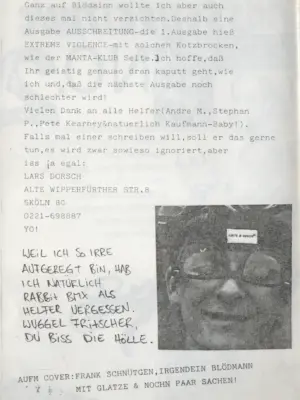 Ganz auf Blödsinn wollte ich aber auch
dieses mal nicht verzichten.Deshalb eine
Ausgabe AUSSCHREITUNG-die 1.Ausgabe hieß
EXTREME VIOLENCE-mit solchen Kotzbrocken,
wie der MANTA-KLUB Seite.Ich hoffe,daß
Ihr geistig genauso dran kaputt geht,wie
ich und,daß die nächste Ausgabe noch
schlechter wird!
Vielen Dank an alle Helfer(Andre M.,Stephan
P.,Pete Kearney&natuerlich Kaufmann-Baby!).
Falls mal einer schreiben will,soll er das gerne
tun,es wird zwar sowieso ignoriert,aber
iss ja egal:
LARS DORSCH
ALTE WIPPERFÜRTHER STR.8
5KÖLN 80
0221-698087
YO!
WEIL ICH SO IRRE
AUFGEREGT BIN, HAB
ICH NATÜRLICH
RABBIT BMX ALS
HELFER VERGESSEN.
WUGGEL FRITSCHER,
DU BISS DIE HÖLLE.
AUFM COVER:FRANK SCHNÜTGEN,IRGENDEIN BLÖDMANN
MIT GLATZE & NOCHN PAAR SACHEN!